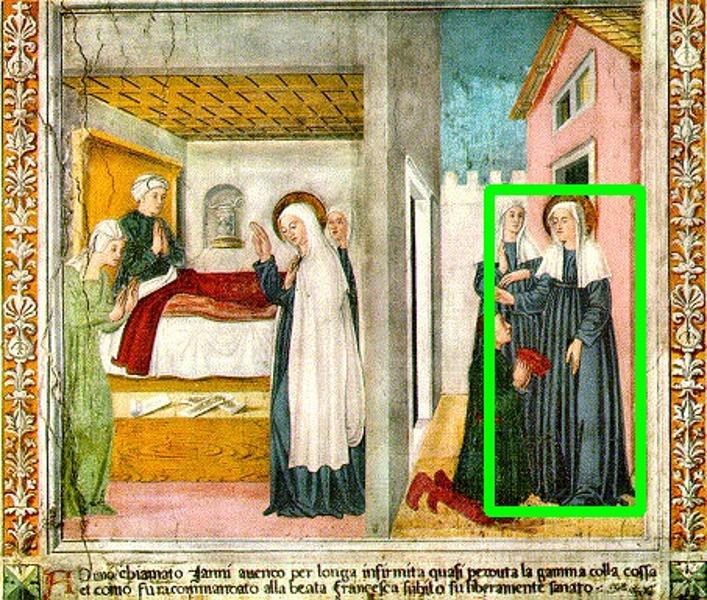 Dimo chiamato Janni avenco per longa infirmita quasi peronta la gamma colla cossa
et como fu raccommannato alla beata francesca subito fu liberamente sanato